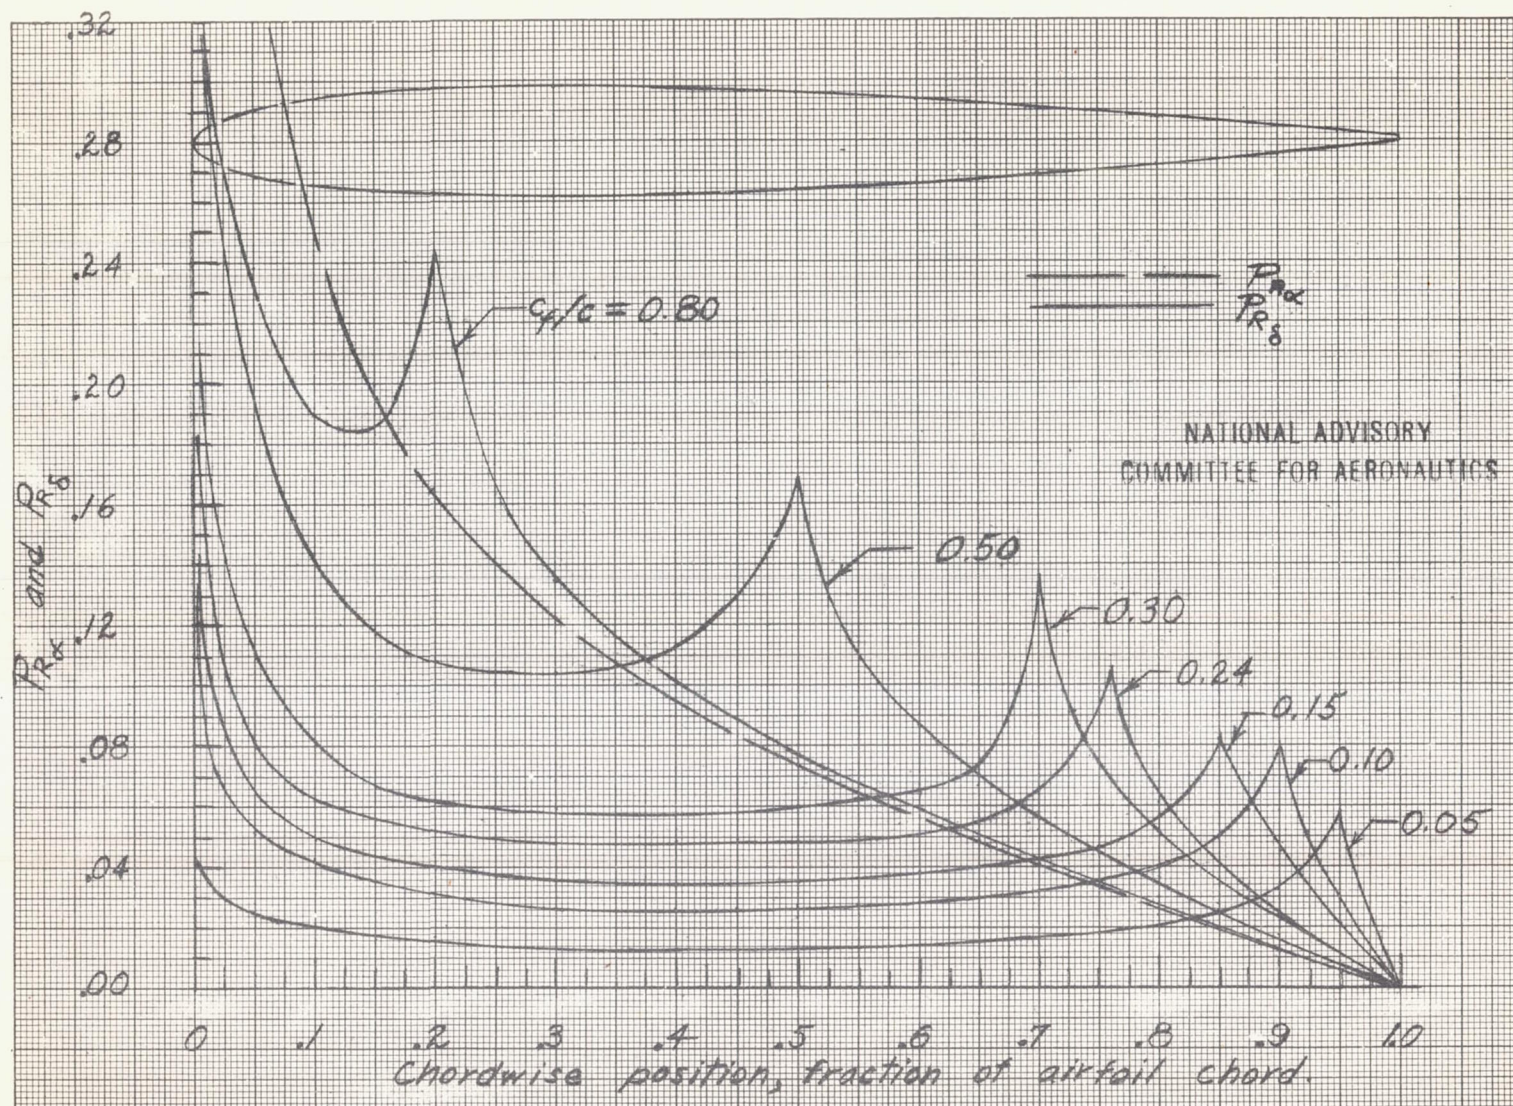 .32
.28
.24
.20
.16
.12
.08
.04
.00
P_Rα and P_Rδ
c_f/c = 0.80
0.50
0.30
0.24
0.15
0.10
0.05
P_Rα
P_Rδ
NATIONAL ADVISORY
COMMITTEE FOR AERONAUTICS
0 .1 .2 .3 .4 .5 .6 .7 .8 .9 1.0
Chordwise position, fraction of airfoil chord.